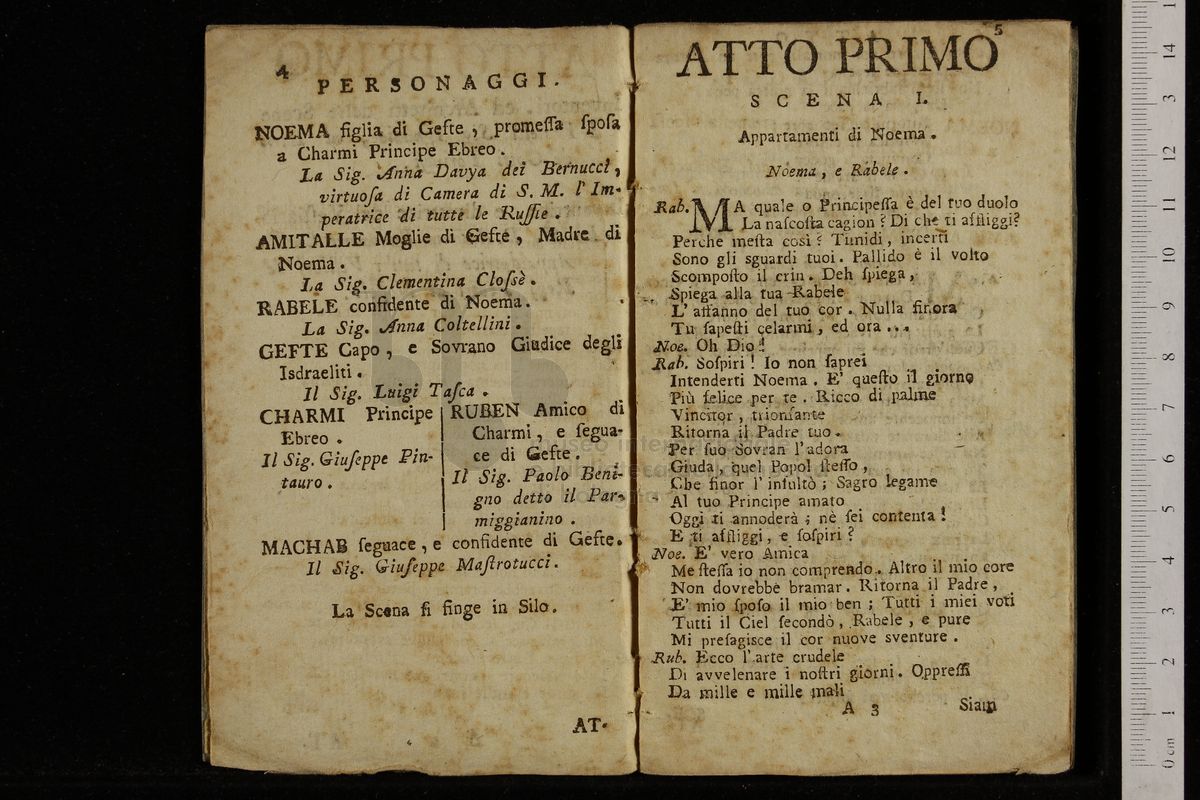 4
PERSONAGGI.
NOEMA figlia di Gefte, promeſſa ſpoſa
a Charmi Principe Ebreo.
La Sig. Anna Davya dei Bernucci,
virtuoſa di Camera di S. M. l'Im-
peratrice di tutte le Ruſſie.
AMITALLE Moglie di Gefte, Madre di
Noema.
La Sig. Clementina Cloſsè.
RABELE confidente di Noema.
La Sig. Anna Coltellini.
GEFTE Capo, e Sovrano Giudice degli
Isdraeliti.
Il Sig. Luigi Taſca.
CHARMI Principe
Ebreo.
Il Sig. Giuſeppe Pin-
tauro.
RUBEN Amico di
Charmi, e ſegua-
ce di Gefte.
Il Sig. Paolo Beni-
gno detto il Par-
miggianino.
MACHAB ſeguace, e confidente di Gefte.
Il Sig. Giuſeppe Maſtrotucci.
La Scena ſi finge in Silo.
AT-
5
ATTO PRIMO
SCENA I.
Appartamenti di Noema.
Noema, e Rabele.
Rab. MA quale o Principeſſa è del tuo duolo
La naſcoſta cagion? Di che ti affliggi?
Perche meſta così? Timidi, incerti
Sono gli sguardi tuoi. Pallido è il volto
Scompoſto il crin. Deh ſpiega,
Spiega alla tua Rabele
L'affanno del tuo cor. Nulla finora
Tu ſapeſti celarmi, ed ora...
Noe. Oh Dio!
Rab. Soſpiri! Io non ſaprei
Intenderti Noema. E' queſto il giorno
Più felice per te. Ricco di palme
Vincitor, trionfante
Ritorna il Padre tuo.
Per ſuo Sovran l'adora
Giuda, quel Popol ſteſſo,
Che finor l'inſultò; Sagro legame
Al tuo Principe amato
Oggi ti annoderà; nè ſei contenta!
E ti affliggi, e ſoſpiri?
Noe. E' vero Amica
Me ſteſſa io non comprendo. Altro il mio core
Non dovrebbe bramar. Ritorna il Padre,
E' mio ſpoſo il mio ben; Tutti i miei voti
Tutti il Ciel ſecondò, Rabele, e pure
Mi preſagisce il cor nuove sventure.
Rub. Ecco l'arte crudele
Di avvelenare i noſtri giorni. Oppreſſi
Da mille e mille mali
A 3
Siam